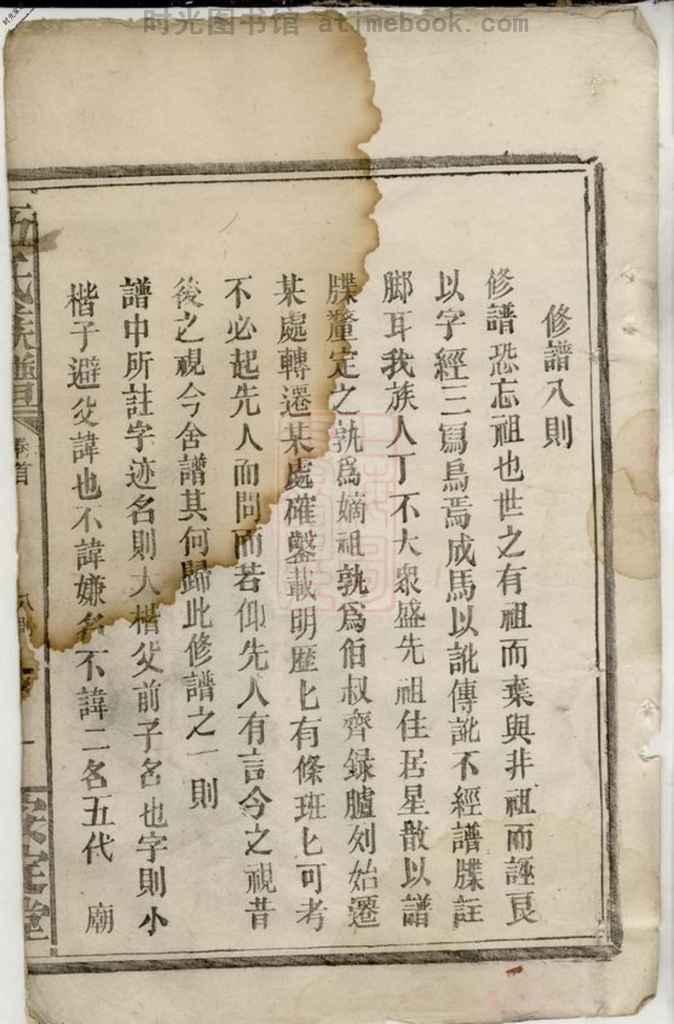 时光图书馆 atimebook.com
修譜八則
修譜恐忘祖也世之有祖而棄與非祖而誣良
以字經三寫烏焉成馬以訛傳訛不經譜牒註
脚耳我族人丁不大衆盛先祖住居星散以譜
牒釐定之孰爲嫡祖孰爲伯叔齊録臚列始遷
某處轉遷某處確鑿載明歷匕有條班匕可考
不必起先人而問而若仰先人有言今之視昔
後之視今舍譜其何歸此修譜之一則
譜中所註字迹名則大楷父前子名也字則小
楷子避父諱也不諱嫌名不諱二名五代 廟
氏族譜
卷首
八則
一
定堂